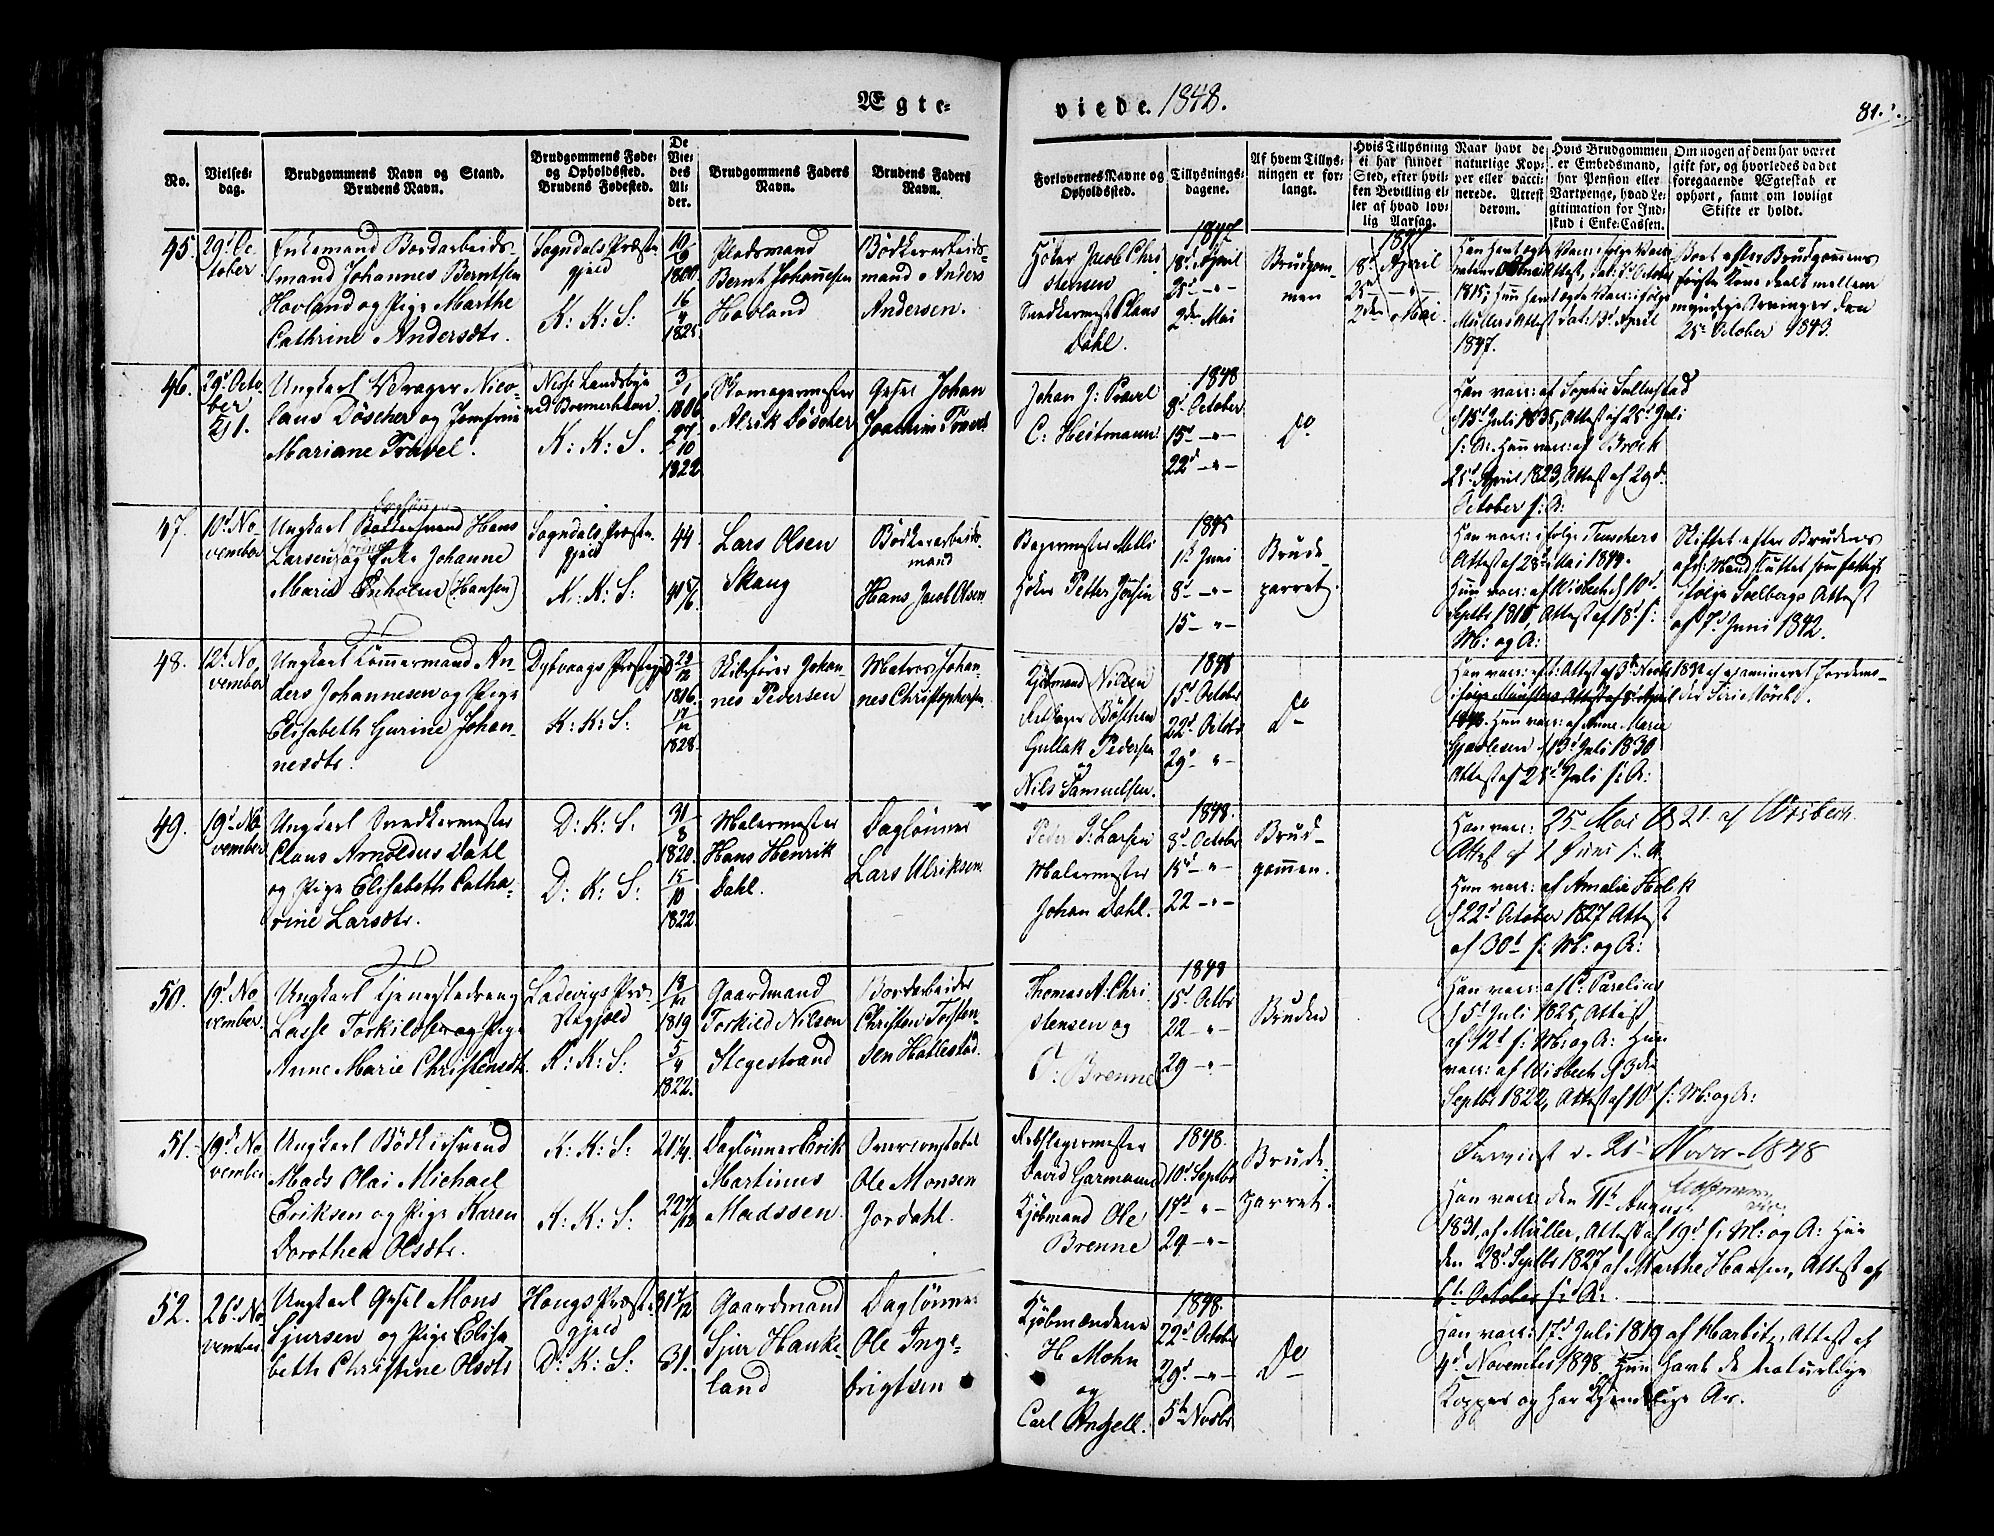 Ægte-
viede. 1848.
81.
No.
Vielses-
dag.
Brudgommens Navn og Stand.
Brudens Navn.
Brudgommens Føde-
og Opholdssted.
Brudens Fødested.
De
Vie-
des
Al-
der.
Brudgommens Faders
Navn.
Brudens Faders
Navn.
Forlovernes Navne og
Opholdssted.
Tillysnings-
dagene.
Af hvem Tillys-
ningen er for-
langt.
Hvis Tillysning
ei har fundet
Sted, efter hvil-
ken Bevilling el-
ler af hvad lov-
lig Aarsag.
Naar havt de
naturlige Kop-
per eller vacci-
nerede. Attest
derom.
Hvis Brudgommen
er Embedsmand,
har Pension eller
Vartpenge, hvad Le-
gitimation for Ind-
skud i Enke-Cassen.
Om nogen af dem har været
gift for, og hvorledes da det
foregaaende Ægteskab er
ophort, samt om lovligt
Skifte er holdt.
45.
29d Oc-
tober
Enkemand Bordarbeids-
mand Johannes Berntsen
Hovland og Pige Marthe
Cathrine Andersdtr.
Sogndals Præste-
gjeld
K: K: S:
10/9
1800
16/4
1825
Pladsmand
Bernt Johannesen
Hovland
Bødkerarbeids-
mand Anders
Andersen.
Jacob Chri-
stensen
Snedkermest Claus
Dahl.
1847
18d April
25d -"-
2den Mai
Brudgom-
men
1847
18d April
25d -"-
2den Mai
1815; hun
Müllers Attest dat: 13d April
1847.
Boet efter Brudgommens
første Kone deelt mellem
myndige Arvinger den
25d October 1843.
46.
29d Octo-
ber
Ungkarl Vedrager Nico-
laus Döscher og Jomfrue
Mariane Travel.
Nesse Landsbye
ved Bremerhaven
K: K: S.
3/1
1806
27/10
1822
Skomagermester
Alrik Döscher
Gesel Johan
Joachim Travel
Johan J: Travel
C: Heitmann
1848
8d October
15d -"-
22d -"-
Do
Han vacc: af Sophie Sellestad
d 15d Juli 1835, Attest af 25d Juli
s: A: Hun vacc: af Brock
25d April 1823, Attest af 29d
October s: A:
47.
10d No-
vember
Ungkarl Hans
Larsen og Enke Johanne
Marie Enholm (Hansen)
Sogndals Præste-
gjeld
K: K: S:
44
Lars Olsen
Skaug
Bødkerarbeids-
mand
Hans Jacob Olsen
Bagermester
Petter
1845
1d Juni
8d -"-
15 -"-
Brude-
parret.
Han vacc: i følge Teuschers
Attest af 28d Mai 1849.
Hun vacc: af Wisbech d 10d
Septbr 1810, Attest af 18d s:
M: og A:
Skiftet efter Brudens
afd: Mand sluttet som fattigt
ifølge Attest
af 7d Juni 1842.
48.
12d No-
vember
Ungkarl Tømmermand An-
ders Johannesen og Pige
Elisabeth Gurine Johan-
nesdtr.
Dybvaags Præstegjd
K: K: S:
1816
17/12
1828.
Skibsfører Johan-
nes Pedersen
Matros Johan-
nes Christophersen
Kjøbmand Nilsen
Gullak Pedersen
og
Nils Samuelsen.
1848
15d October
22d Octobr
29d "
Do
1848. Hun vacc: af Anne Marie
13d Juli 1830
Attest af 25d Juli s: A:
49.
19d No-
vember
Ungkarl Snedkermester
Claus Arnoldus Dahl
og Pige Elisabeth Catha-
rine Larsdtr.
D: K: S:
D: K: S:
31/8
1820.
15/10
1822
Malermester
Hans Henrik
Dahl.
Daglønner
Lars Ulriksen
Peder P: Larsen
Malermester
Johan Dahl.
1848.
8d October
15d -"-
22 -"-
Brud-
gommen.
Han vacc: 25de Mai 1821 af Wisbech.
Attest af 1 Juni s: A
Hun vacc: af Amalia Holck
d 22d October 1827 Attest
af 30d s: M: og A:
50.
19d No-
vember
Ungkarl Tjenestedreng
Lasse Torkildsen og Pige
Anne Marie Christensdtr.
Ladevigs Præ-
stegjeld
K: K: S:
18/12
1819
5/4
1822.
Gaardmand
Torkild Nilsen
Stegestrand
Bordarbeider
Christen Torsten-
sen Hallestad.
Thomas A: Chri-
stensen og
T: Brenne
1848
15d Octbr
22 -"-
29 -"-
Bruden
Han vacc: af C: Parelius
d 5d Juli 1825, Attest
af 12d s: M: og A: Hun
vacc: af Wisbech d 3die
Septbr 1822, Attest af 10d s: M: og A:
51.
19d No-
vember
Ungkarl Bødkersvend
Mads Olai Michael
Eriksen og Pige Karen
Dorothea Olsdtr.
K: K: S:
K: K: S:
21 1/4.
Daglønner Erik
Martinus
Madssen.
Overconstabel
Ole Monsen
Jordahl.
Rebslagermester
David Garmann
Kjøbmand Ole
Brenne
1848.
10d Septbr
17d "
24 -"-
Brude-
parret.
Fraviet d. 21d Novbr. 1848
Han vacc: den 11d August
1831, af Müller, Attest af 19d s: M: og A: Hun
den 28d Septbr 1827 af Marthe Hansen, Attest af
6d October s: A:
52.
26d No-
vember
Ungkarl Gesel Mons
Sjursen og Pige Elisa-
beth Christine Olsdtr
Hougs Præste-
gjeld
D: K: S:
31.
Gaardmand
Sjur Hauke-
land
Daglønner
Ole Inge-
brigtsen
Kjøbmændene
H Mohn
og
Carl Angell.
1848.
22d October
29d -"-
5te Novbr
Do
Han vacc: 17d Juli 1819 af Harbitz, Attest af
4d November 1848 Hun havt de naturlige
Kopper og har kjendelige Ar.